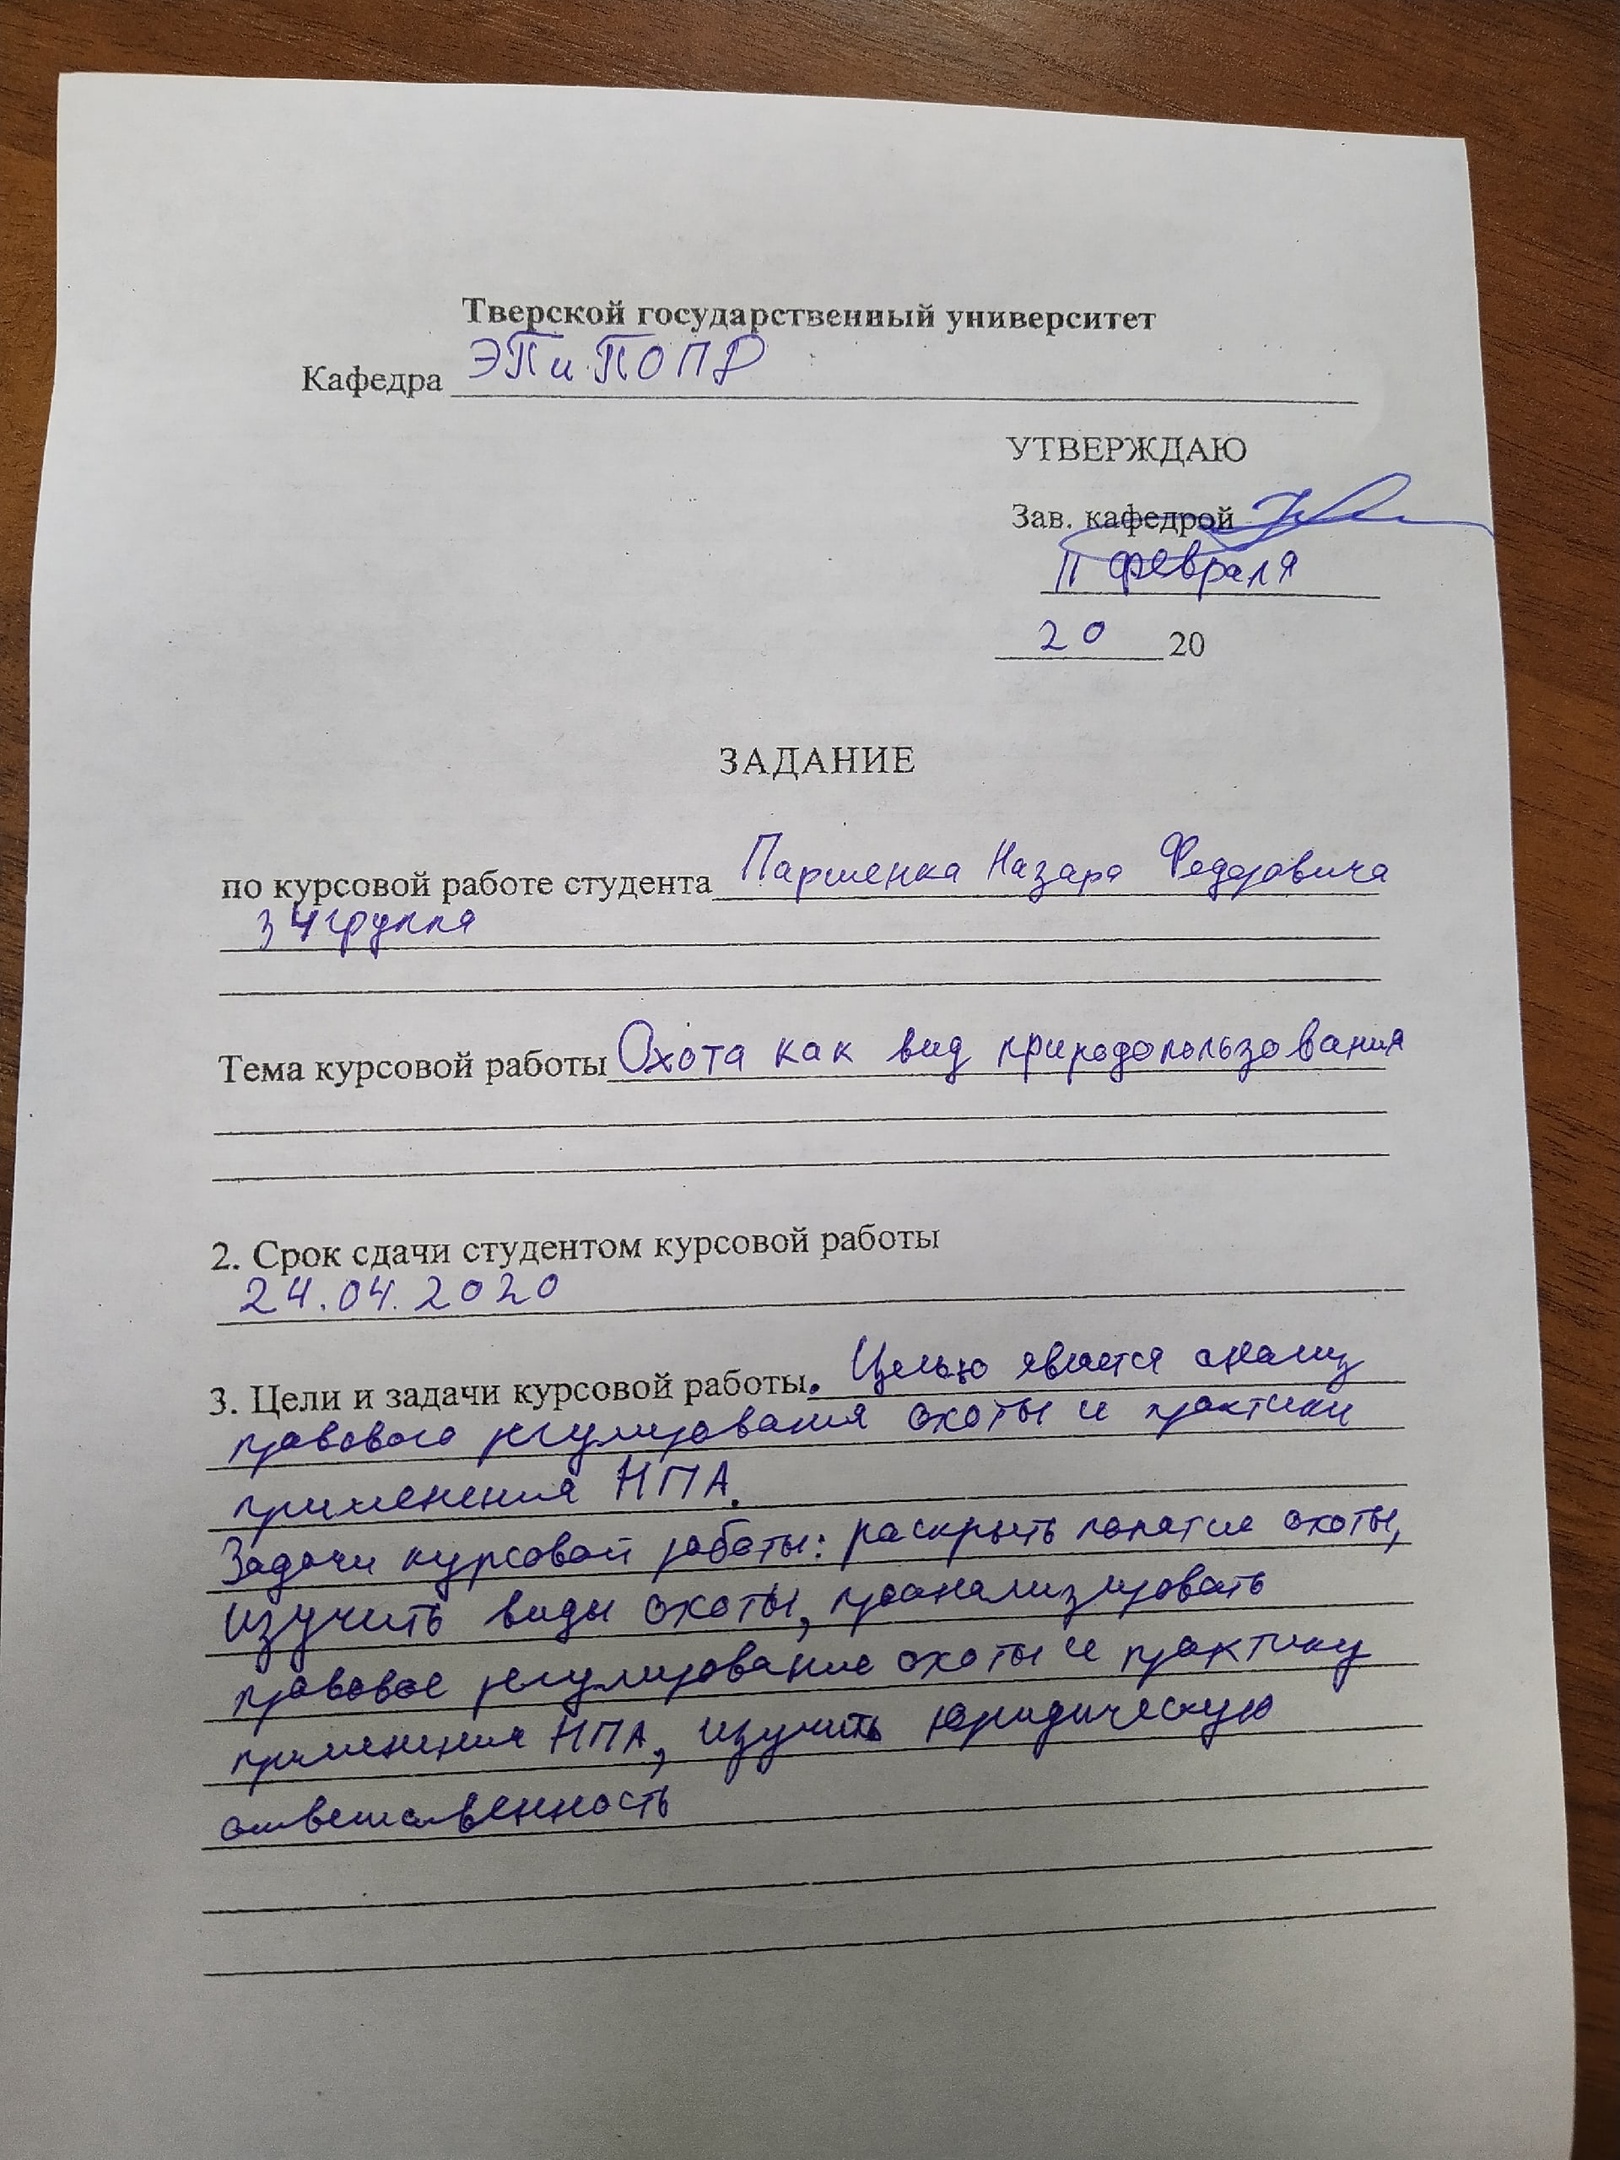 Тверской государственный университет
Кафедра ЭПиПОПД
УТВЕРЖДАЮ
Зав. кафедрой
11 февраля
20 20
ЗАДАНИЕ
по курсовой работе студента Паршенка Назара Федоровича
34 группа
Тема курсовой работы Охота как вид природопользования
2. Срок сдачи студентом курсовой работы
24.04.2020
3. Цели и задачи курсовой работы. Целью является анализ
правового регулирования охоты и практики
применения НПА.
Задачи курсовой работы: раскрыть понятие охоты,
изучить виды охоты, проанализировать
правовое регулирование охоты и практику
применения НПА, изучить юридическую
ответственность